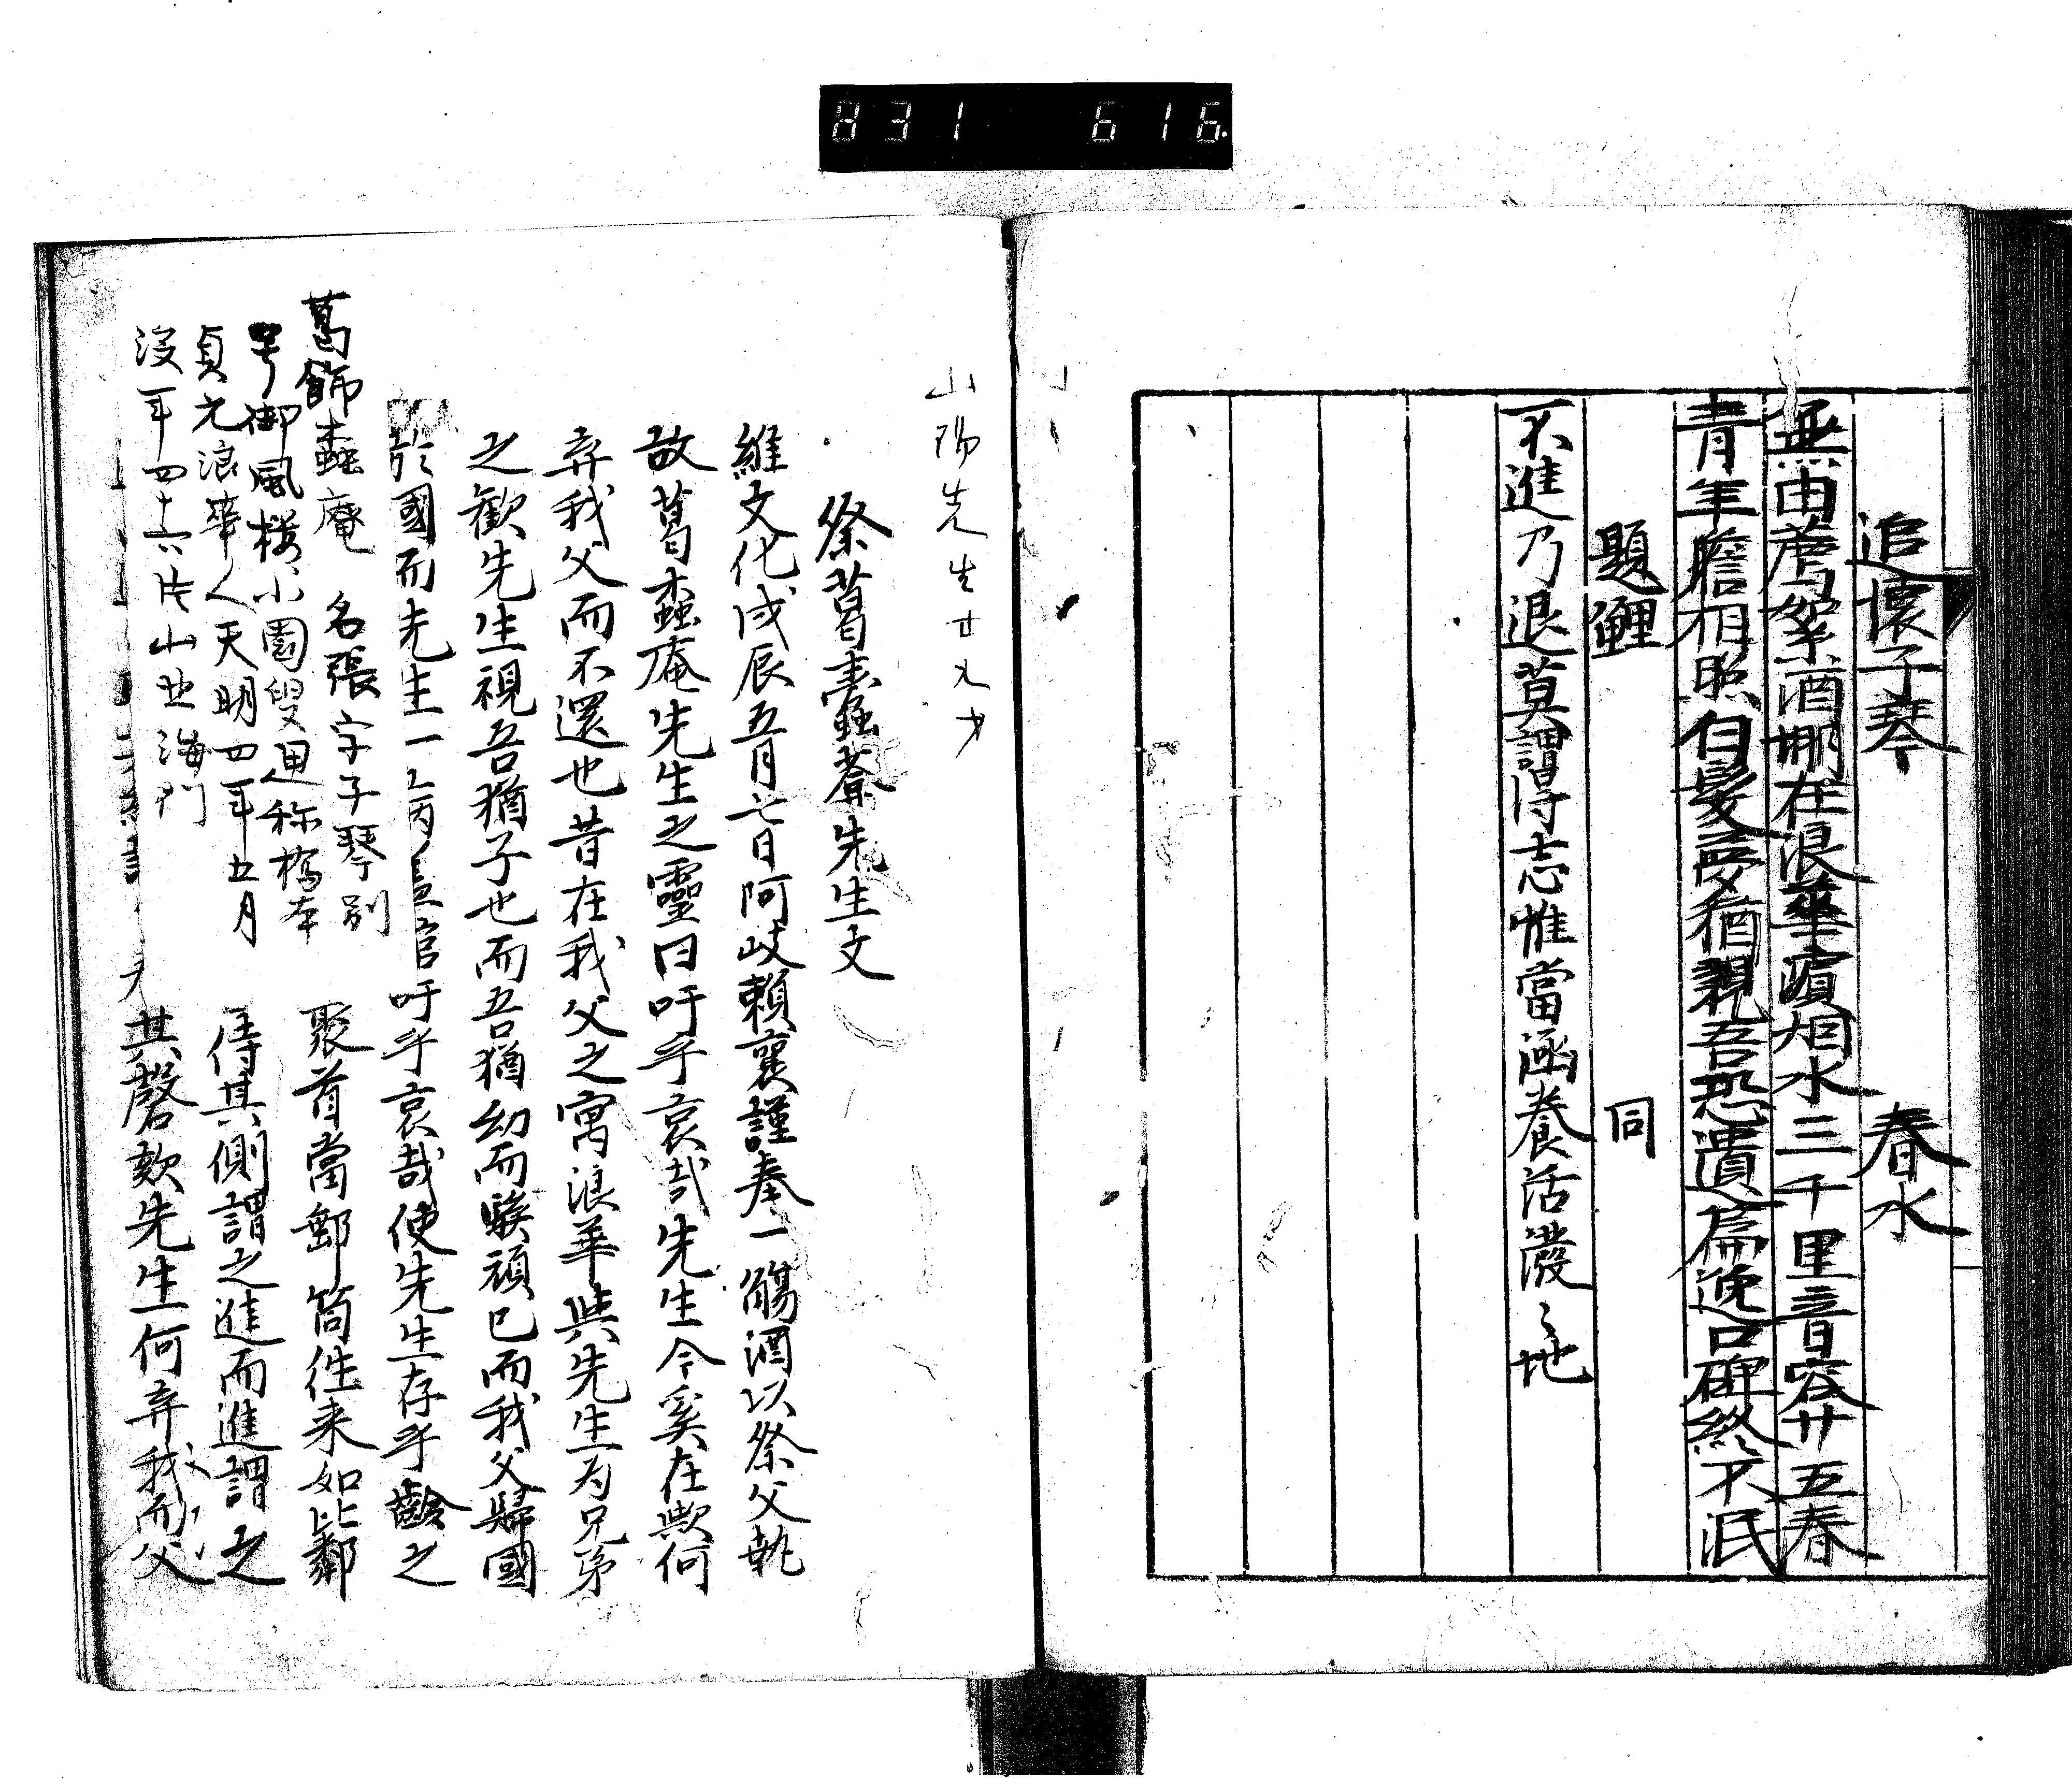 831 616
追懷子琴 春水
無由薦絮酒 墓在浪華濆 烟水三千里 音容廿五春
青年膽相照 白髮夢猶親 吾恐遺篇逸 口碑終不泯
題鯉 同
不進乃退莫謂得志惟當涵養活潑〻地
山陽先生廿九才
祭葛蠧菴先生文
維文化戊辰五月七日阿岐賴襄謹奉一觴酒以祭父執
故葛蠧庵先生之靈曰吁乎哀哉先生今奚在歟何
弃我父而不還也昔在我父之寓浪華與先生為兄弟
之歡先生視吾猶子也而吾猶幼而騃頑已而我父歸國
於國而先生一病 蓋官吁乎哀哉使先生存乎齡之
聚首當郵筒往来如比鄰
侍其側謂之進而進謂之
其謦欬先生何弃我而父
葛飾蠧庵 名張字子琴別
号御風樓小園叟通称橋本
貞元浪華人天明四年五月
没年四十六片山北海門